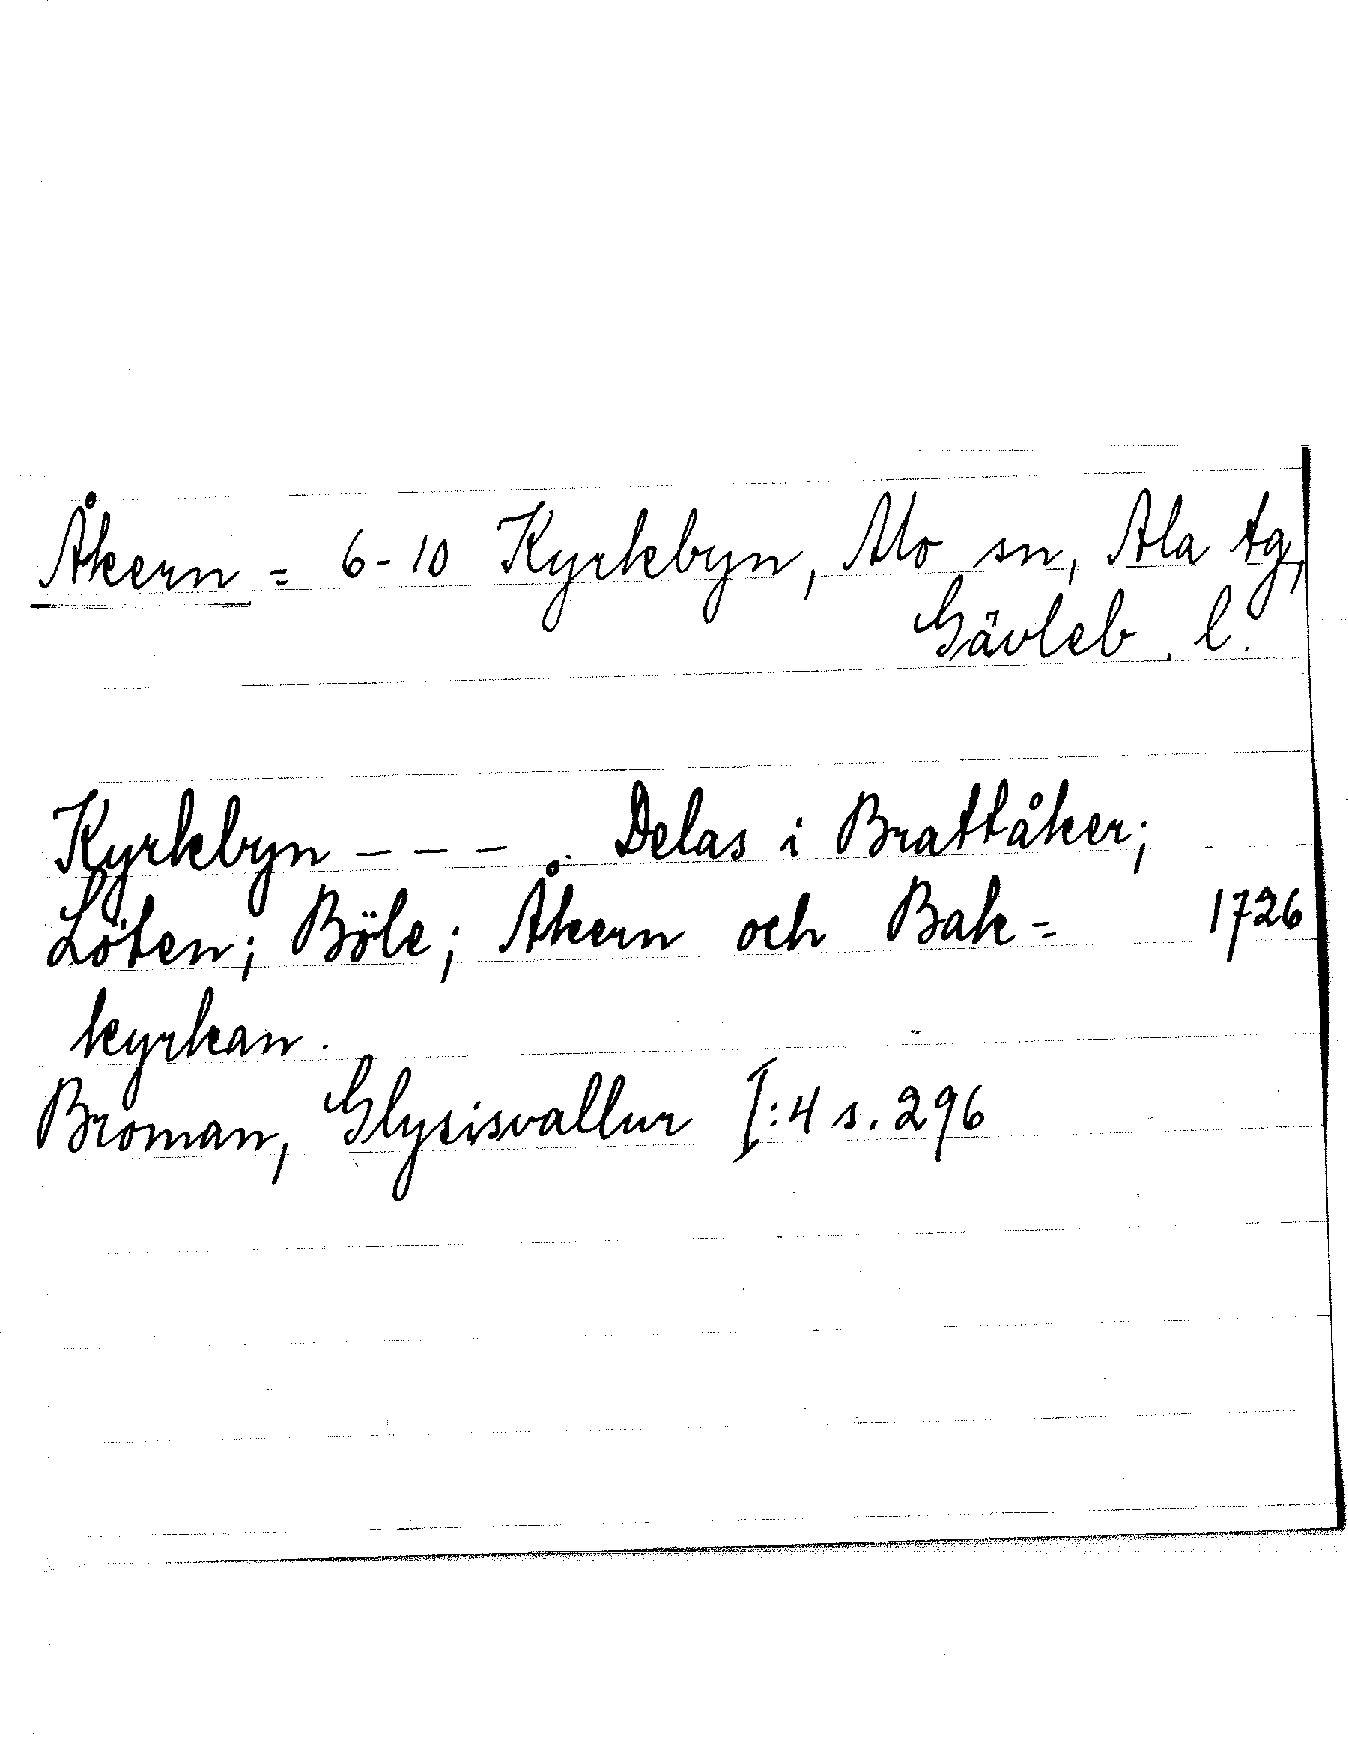 Åkern = 6-10 Kyrkebyn, Mo sn, Ala tg,
Gävleb. l.
Kyrkebyn - - - . Delas i Brattåker;
Löten; Böle; Åkern och Bak= 1726
kyrkan.
Broman, Glysisvallur I:4 s. 296